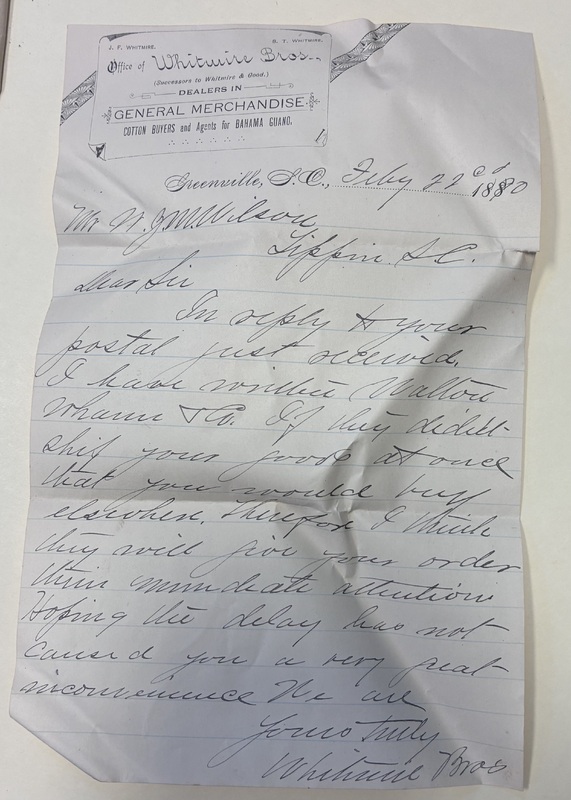 J. F. WHITMIRE. S. T. WHITMIRE.
Office of Whitmire Bros.,
(Successors to Whitmire & Good.)
DEALERS IN
GENERAL MERCHANDISE.
COTTON BUYERS and Agents for BAHAMA GUANO.
Greenville, S. C., Feby 22cd 1890
Mr W. J. M. Wilson
Tippin S.C.
Dear Sir
In reply to your
postal just received.
I have written Walton
Whann & Co. If they diddt
ship your goods at once
that you would buy
elsewhere, therefor I think
they will give your order
their immediate attention
Hoping the delay has not
caused you a very great
inconvenience We are
Yours Truly
Whitmire Bros